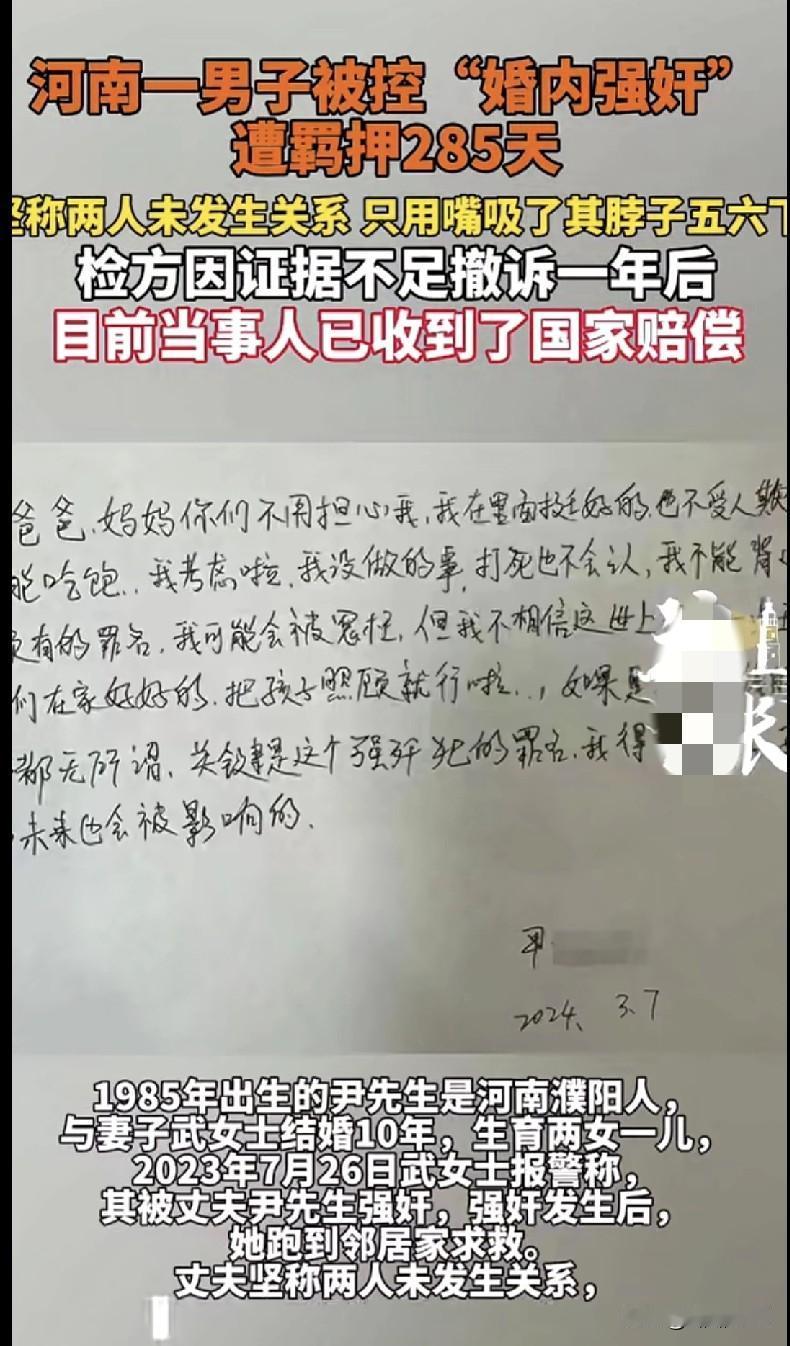 河南一男子被控“婚内强奸”
遭羁押285天
坚称两人未发生关系 只用嘴吸了其脖子五六下
检方因证据不足撤诉一年后
目前当事人已收到了国家赔偿
爸爸、妈妈你们不用担心我,我在里面挺好的.也不受人欺
能吃饱..我考虑啦,我没做的事,打死也不会认,我不能背
没有的罪名,我可能会被冤枉,但我不相信这世上
们在家好好的,把孩子照顾就行啦..,如果是
都无所谓,关键是这个强奸犯的罪名,我得
未来也会被影响的.
2024. 3.7
1985年出生的尹先生是河南濮阳人,
与妻子武女士结婚10年,生育两女一儿,
2023年7月26日武女士报警称,
其被丈夫尹先生强奸,强奸发生后,
她跑到邻居家求救。
丈夫坚称两人未发生关系,